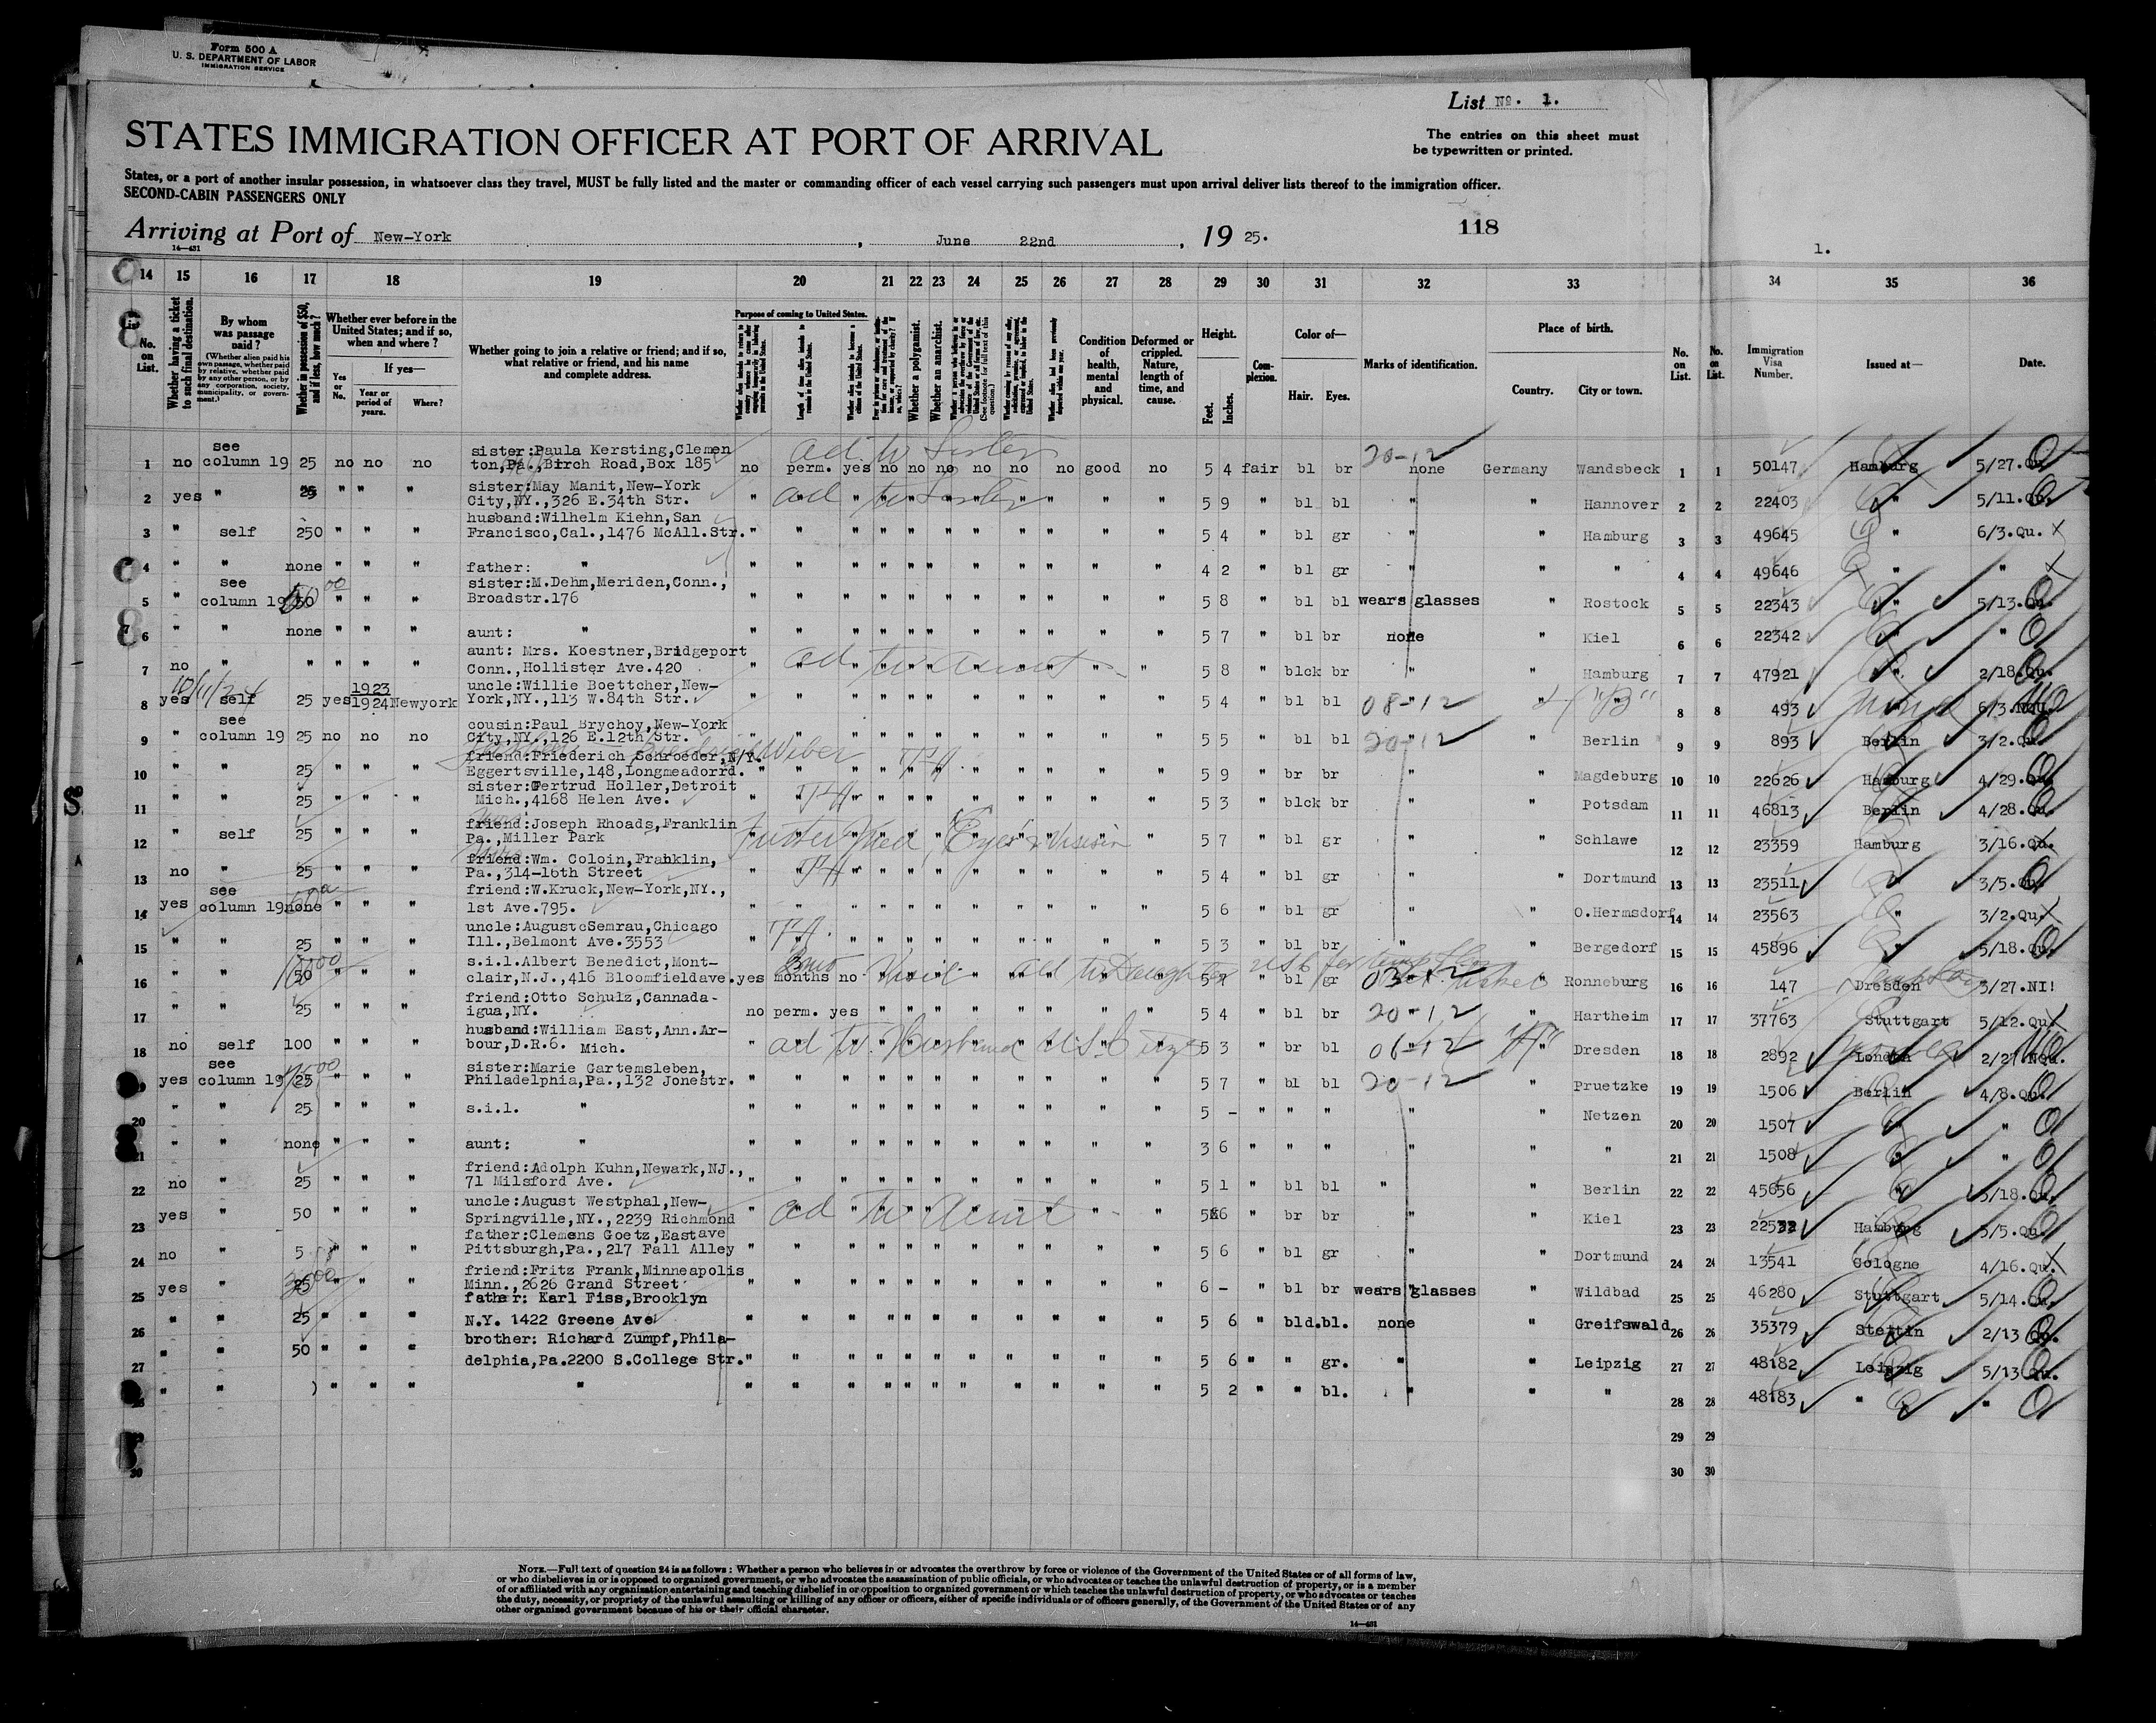 Form 500 A
U. S. DEPARTMENT OF LABOR
IMMIGRATION SERVICE
List No. 1.
STATES IMMIGRATION OFFICER AT PORT OF ARRIVAL
The entries on this sheet must
be typewritten or printed.
States, or a port of another insular possession, in whatsoever class they travel, MUST be fully listed and the master or commanding officer of each vessel carrying such passengers must upon arrival deliver lists thereof to the immigration officer.
SECOND-CABIN PASSENGERS ONLY
Arriving at Port of New-York, June 22nd, 19 25.
118
14—431
1.
14 15 16 17 18 19 20 21 22 23 24 25 26 27 28 29 30 31 32 33 34 35 36
No. on List.
Whether having a ticket to such final destination.
By whom was passage paid?
(Whether alien paid his own passage, whether paid by relative, whether paid by any other person, or by any corporation, society, municipality, or government.)
Whether in possession of $50, and if less, how much?
Whether ever before in the United States; and if so, when and where?
Yes or No.
If yes—
Year or period of years.
Where?
Whether going to join a relative or friend; and if so, what relative or friend, and his name and complete address.
Purpose of coming to United States.
Whether a polygamist.
Whether an anarchist.
Condition of health, mental and physical.
Deformed or crippled. Nature, length of time, and cause.
Height.
Feet. Inches.
Complexion.
Color of—
Hair. Eyes.
Marks of identification.
Place of birth.
Country. City or town.
No. on List.
No. on List.
Immigration Visa Number.
Issued at—
Date.
1 no see column 19 25 no no no sister:Paula Kersting,Clemen ton,Pa.,Birch Road,Box 185 no perm. yes no no no no no no good no 5 4 fair bl br none Germany Wandsbeck 1 1 50147 Hamburg 5/27.Qu.
ad. to Sister 20-12
2 yes " 25 " " " sister:May Manit,New-York City,NY.,326 E.34th Str. " " " " " " " " " " " 5 9 " bl bl " " Hannover 2 2 22403 " 5/11.Qu.
ad to Sister
3 " self 250 " " " husband:Wilhelm Kiehn,San Francisco,Cal.,1476 McAll.Str. " " " " " " " " " " " 5 4 " bl gr " " Hamburg 3 3 49645 " 6/3.Qu.
4 " " none " " " father: " " " " " " " " " " " " 4 2 " bl gr " " " 4 4 49646 "
5 " see column 19 50 " " " sister:M.Dehm,Meriden,Conn., Broadstr.176 " " " " " " " " " " " 5 8 " bl bl wears glasses " Rostock 5 5 22343 " 5/13.Qu.
6 " " none " " " aunt: " " " " " " " " " " " " 5 7 " bl br none " Kiel 6 6 22342 " "
7 no " " " " " aunt: Mrs. Koestner,Bridgeport Conn.,Hollister Ave.420 " " " " " " " " " " " 5 8 " blck br " " Hamburg 7 7 47921 " 2/18.Qu.
ad to aunt
8 yes self 25 yes 1923 1924 Newyork uncle:Willie Boettcher,New- York,NY.,113 W.84th Str. " " " " " " " " " " " 5 4 " bl bl " " " 8 8 493 6/3.NQu.
08-12
9 " see column 19 25 no no no cousin:Paul Brychoy,New-York City,NY.,126 E.12th Str. " " " " " " " " " " " 5 5 " bl bl " Berlin 9 9 893 Berlin 3/2.Qu.
20-12
Weber
10 " " 25 " " " friend:Friederich Schroeder,N/Y. Eggertsville,148,Longmeadorrd. " " " " " " " " " " " 5 9 " br br " " Magdeburg 10 10 22626 Hamburg 4/29.Qu.
11 " " 25 " " " sister:Gertrud Holler,Detroit Mich.,4168 Helen Ave. " " " " " " " " " " " 5 3 " blck br " " Potsdam 11 11 46813 Berlin 4/28.Qu.
12 " self 25 " " " friend:Joseph Rhoads,Franklin Pa.,Miller Park " " " " " " " " " " " 5 7 " bl gr " " Schlawe 12 12 23359 Hamburg 3/16.Qu.
13 no " 25 " " " friend:Wm. Coloin,Franklin, Pa.,314-16th Street " " " " " " " " " " " 5 4 " bl gr " " Dortmund 13 13 23511 " 3/5.Qu.
14 yes see column 19 none " " " friend:W.Kruck,New-York,NY., 1st Ave.795. " " " " " " " " " " " 5 6 " bl gr " " O.Hermsdorf 14 14 23563 " 3/2.Qu.
15 " " 25 " " " uncle:August Semrau,Chicago Ill.,Belmont Ave.3553 " " " " " " " " " " " 5 3 " bl br " " Bergedorf 15 15 45896 " 5/18.Qu.
16 " " 50 " " " s.i.l.Albert Benedict,Mont- clair,N.J.,416 Bloomfieldave. yes months no " " " " " " " " 5 " bl gr " " Ronneburg 16 16 147 Dresden 3/27.NI!
17 " " 25 " " " friend:Otto Schulz,Cannada- igua,NY. no perm. yes " " " " " " " " 5 4 " bl br " " Hartheim 17 17 37763 Stuttgart 5/12.Qu.
20-12
18 no self 100 " " " husband:William East,Ann.Ar- bour,D.R.6. Mich. " " " " " " " " " " " 5 3 " br bl " " Dresden 18 18 2892 London 2/27.NQu.
ad to Husband 06-12
19 yes see column 19 25 " " " sister:Marie Gartemsleben, Philadelphia,Pa.,132 Jonestr. " " " " " " " " " " " 5 7 " bl bl " Pruetzke 19 19 1506 Berlin 4/8.Qu.
20-12
20 " " 25 " " " s.i.l. " " " " " " " " " " " " 5 - " " " " " Netzen 20 20 1507 " "
21 " " none " " " aunt: " " " " " " " " " " " " 3 6 " " " " " " 21 21 1508 " "
22 no " 25 " " " friend:Adolph Kuhn,Newark,NJ., 71 Milsford Ave. " " " " " " " " " " " 5 1 " bl bl " " Berlin 22 22 45656 " 5/18.Qu.
23 yes " 50 " " " uncle:August Westphal,New- Springville,NY.,2239 Richmond ave " " " " " " " " " " " 5 6 " br br " " Kiel 23 23 22532 Hamburg 5/5.Qu.
ad to aunt
24 no " 5 " " " father:Clemens Goetz,East Pittsburgh,Pa.,217 Fall Alley " " " " " " " " " " " 5 6 " bl gr " " Dortmund 24 24 13541 Cologne 4/16.Qu.
25 yes " 25 " " " friend:Fritz Frank,Minneapolis Minn.,2626 Grand Street " " " " " " " " " " " 6 - " bl br wears glasses " Wildbad 25 25 46280 Stuttgart 5/14.Qu.
26 " " 25 " " " father: Karl Fiss,Brooklyn N.Y. 1422 Greene Ave " " " " " " " " " " " 5 6 " bld. bl. none " Greifswald 26 26 35379 Stettin 2/13 Qu.
27 " " 50 " " " brother: Richard Zumpf,Phila- delphia,Pa.2200 S.College Str. " " " " " " " " " " " 5 6 " " gr. " " Leipzig 27 27 48182 Leipzig 5/13 Qu.
28 " " ) " " " " " " " " " " " " " " " " 5 2 " " bl. " " " 28 28 48183 " "
29 29 29
30 30 30
NOTE.—Full text of question 24 is as follows: Whether a person who believes in or advocates the overthrow by force or violence of the Government of the United States or of all forms of law,
or who disbelieves in or is opposed to organized government, or who advocates the assassination of public officials, or who advocates or teaches the unlawful destruction of property, or is a member
of or affiliated with any organization entertaining and teaching disbelief in or opposition to organized government or which teaches the unlawful destruction of property, or who advocates or teaches
the duty, necessity, or propriety of the unlawful assaulting or killing of any officer or officers, either of specific individuals or of officers generally, of the Government of the United States or of any
other organized government because of his or their official character.
14—431